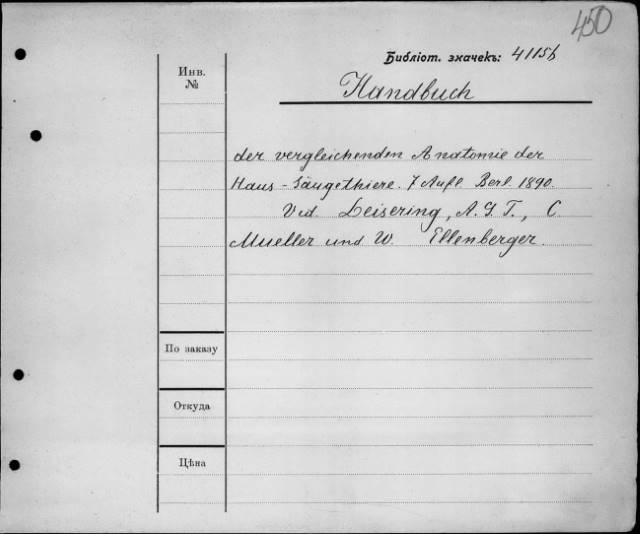 450
Библіот. значекъ: 4115b
Инв.
№
Handbuch
der vergleichenden Anatomie der
Haus-Säugethiere. 7 Aufl. Berl. 1890.
Vid. Leisering, A. G. T., C.
Mueller und W. Ellenberger.
По заказу
Откуда
Цѣна